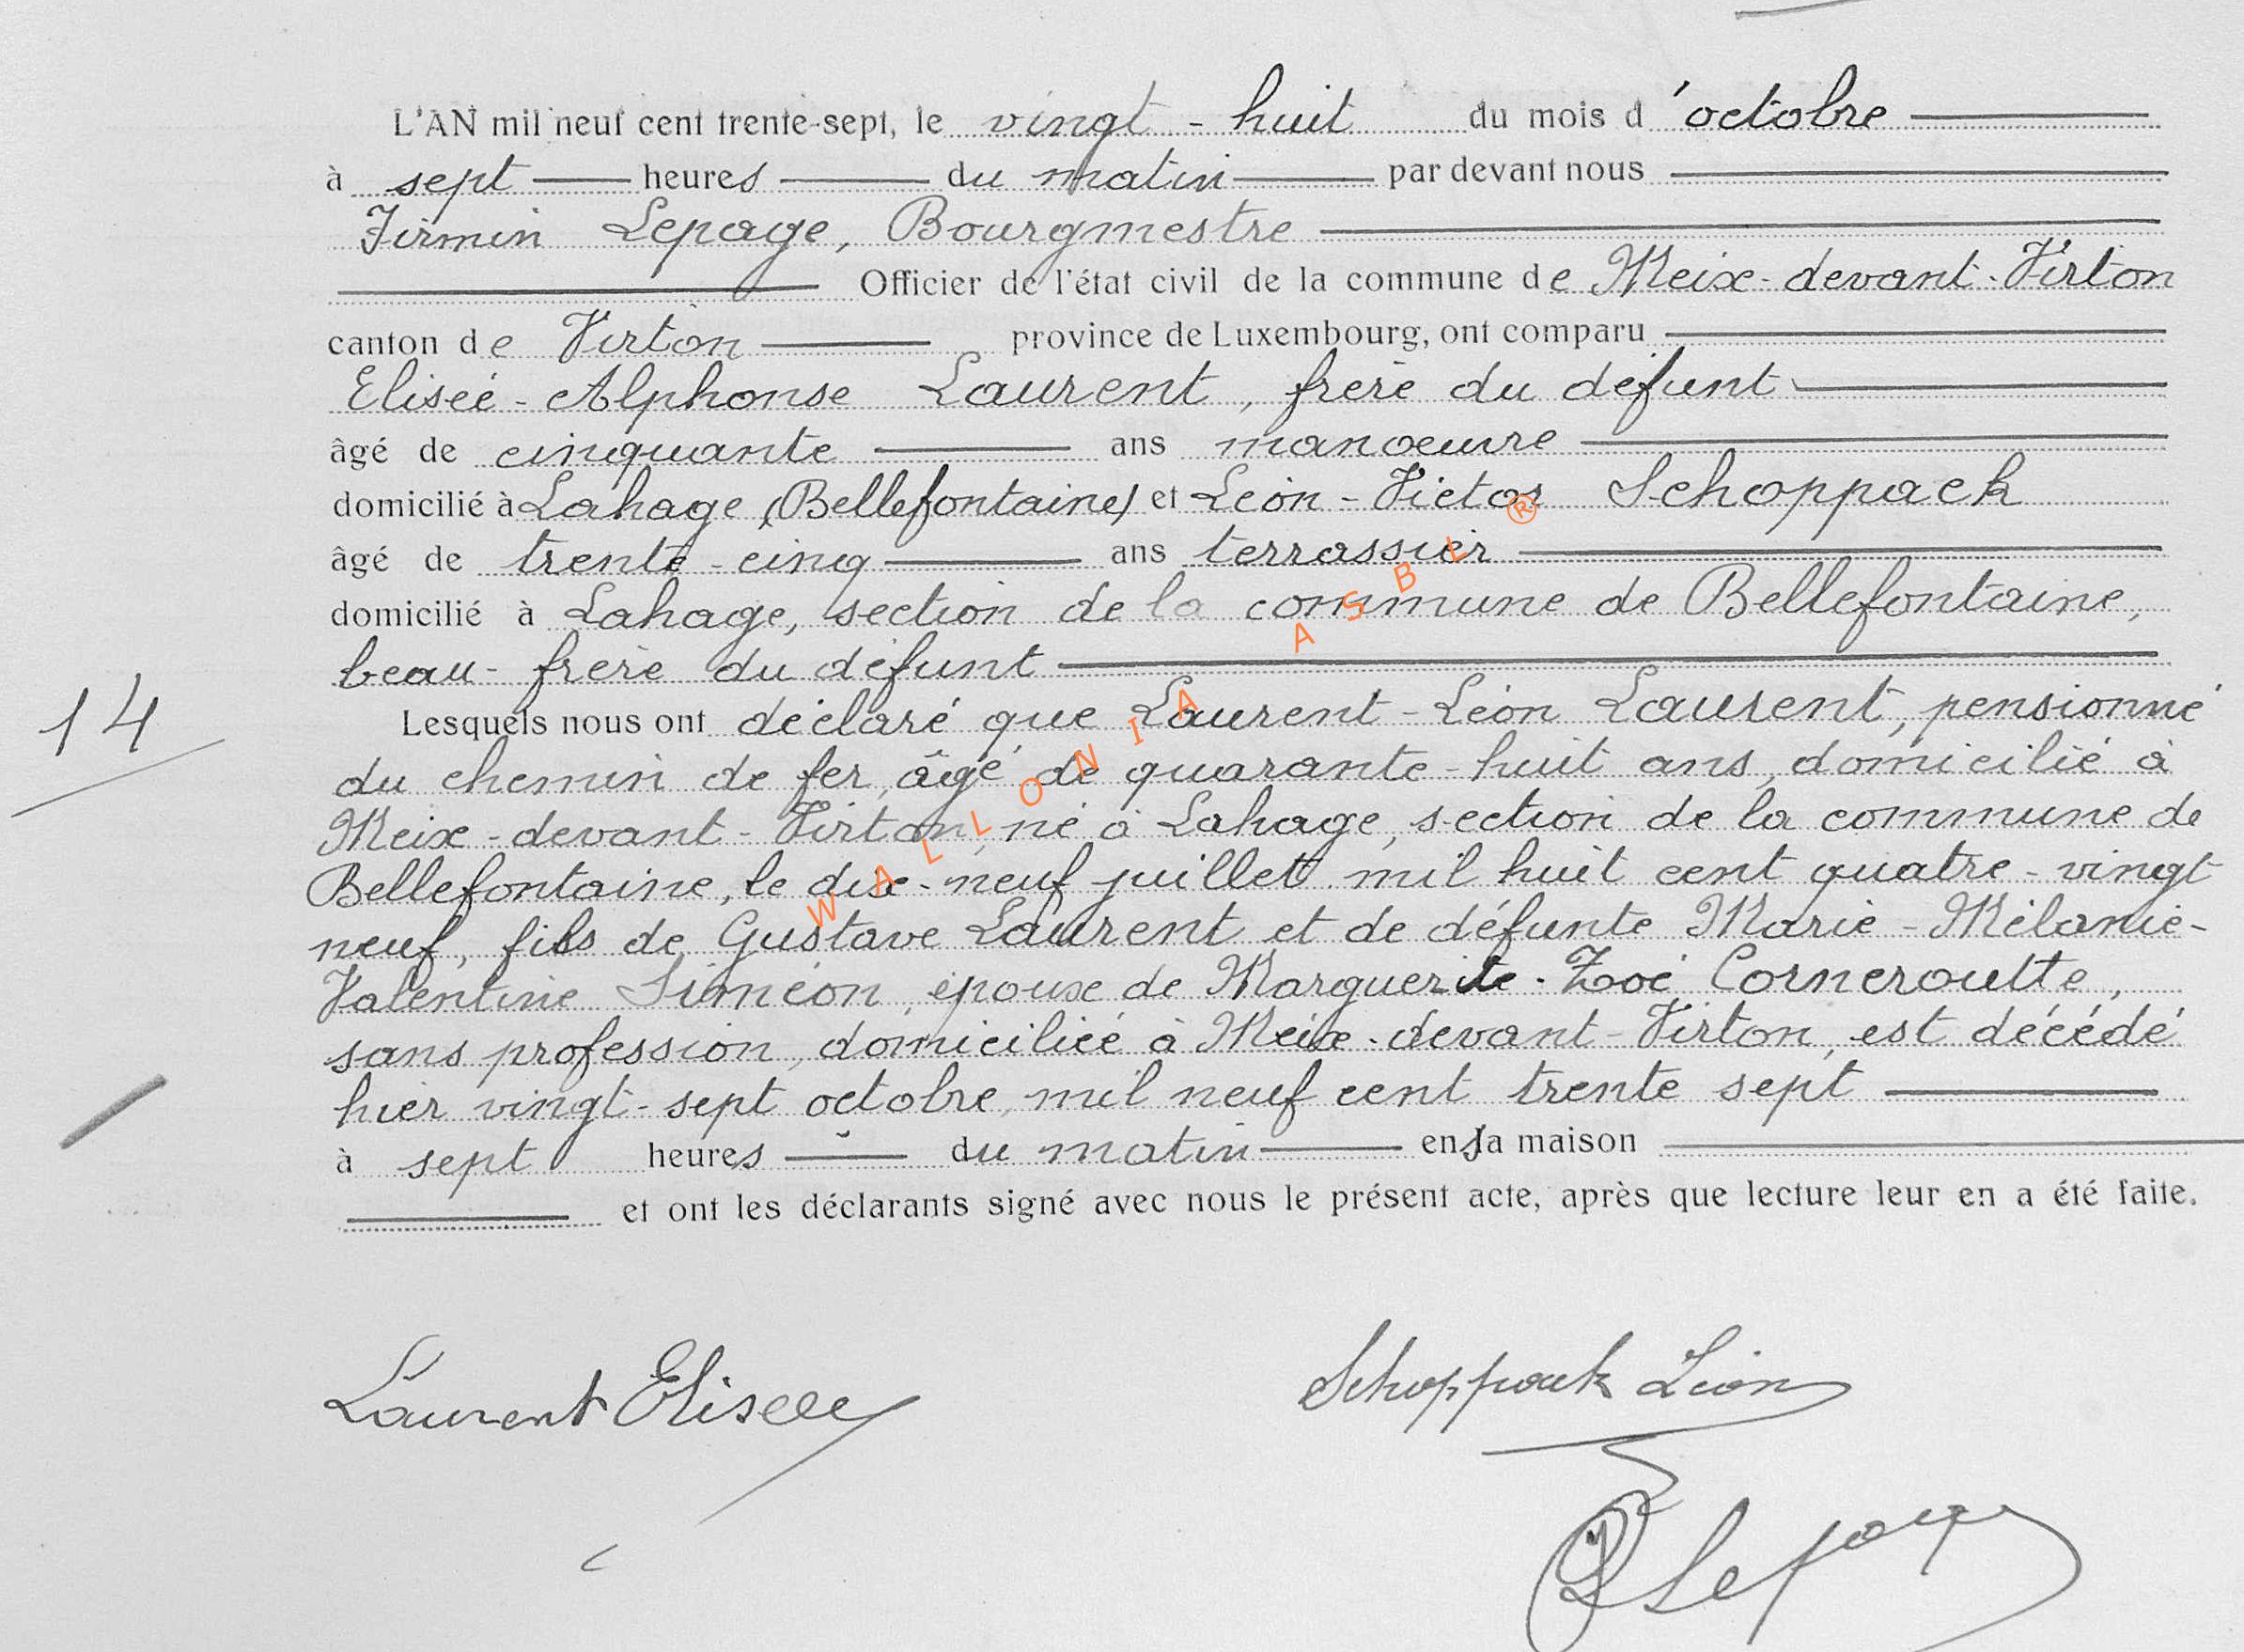 L'AN mil neuf cent trente-sept, le vingt-huit du mois d'octobre
à sept heures du matin par devant nous
Firmin Lepage, Bourgmestre
Officier de l'état civil de la commune de Meix-devant-Virton
canton de Virton province de Luxembourg, ont comparu
Elisée-Alphonse Laurent, frère du défunt
âgé de cinquante ans manoeuvre
domicilié à Lahage (Bellefontaine) et Léon-Victor Schoppach
âgé de trente-cinq ans terrassier
domicilié à Lahage, section de la commune de Bellefontaine,
beau-frère du défunt
14
Lesquels nous ont déclaré que Laurent-Léon Laurent, pensionné
du chemin de fer, âgé de quarante-huit ans, domicilié à
Meix-devant-Virton, né à Lahage, section de la commune de
Bellefontaine, le dix-neuf juillet mil huit cent quatre-vingt
neuf, fils de Gustave Laurent et de défunte Marie-Mélanie-
Valentine Siméon, époux de Marguerite-Zoé Corneroutte,
sans profession, domiciliée à Meix-devant-Virton, est décédé
hier vingt-sept octobre, mil neuf cent trente sept
à sept heures du matin en sa maison
et ont les déclarants signé avec nous le présent acte, après que lecture leur en a été faite.
Laurent Elisée
Schoppach Léon
Lepage
WALLONIA ASBL ®